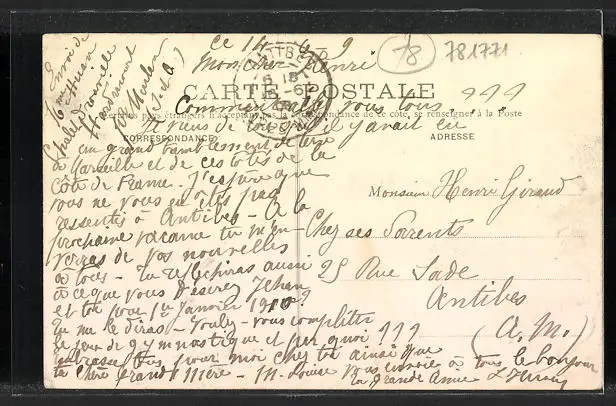 Envoi de
Mme
Chalet
Hardricourt
Par Meulan
(S & O)
ce 14 - 6 9
78
781771
Mon cher Henri
CARTE POSTALE
Comment allez vous tous ???
pays étrangers n'acceptent pas la correspondance de ce côté, se renseigner à la Poste
Je viens de lire qu'il y avait eu
CORRESPONDANCE
ADRESSE
un grand tremblement de terre
à Marseille et de ces côtés de la
côte de France. J'espère que
vous ne vous en êtes pas
ressentis à Antibes - À la
prochaine vacance tu m'en-
verras de vos nouvelles
à tous - Tu réfléchiras aussi
à ce que vous désirez Jehan
et toi pour 1er Janvier 1910?
tu me le diras - Voulez-vous compléter
le jeux de gymnastique et par quoi ???
embrasse pour moi cher toi ainsi que
ta chère grand mère - M. Louise vous envoie à tous le bonjour
ta grande amie
Monsieur Henri Giraud
Chez ses Parents
25 Rue Sade
Antibes
(A. M.)